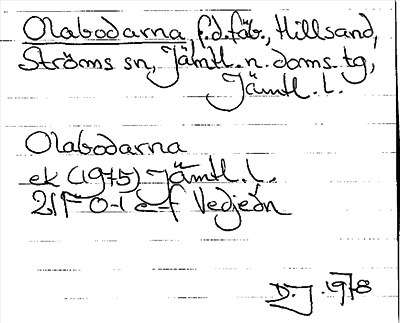 Olabodarna, f.d.fäb., Hillsand,
Ströms sn, Jämtl. n. doms. tg,
Jämtl. l.
Olabodarna
ek (1975) Jämtl. l.
21F 0-1 e-f Vedjeön
D.J. 1978